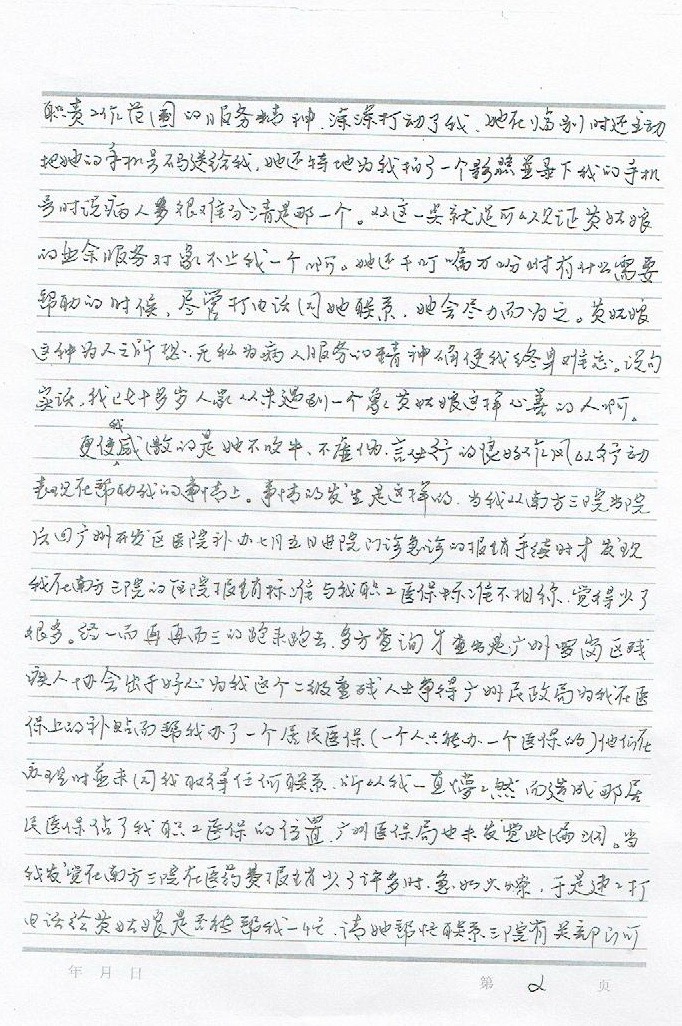 职责工作范围的服务精神,深深打动了我,她在临别时还主动
把她的手机号码送给我,她还特地为我拍了一个影照并录下我的手机
号时说病人多很难分清是那一个。从这一点就足可以见证黄姑娘
的业余服务对象不止我一个啊。她还千叮嘱万吩咐有什么需要
帮助的时候,尽管打电话同她联系,她会尽力而为之。黄姑娘
这种为人之所想,无私为病人服务的精神确使我终身难忘。说句
实话,我已七十多岁人家从未遇到一个象黄姑娘这样心善的人啊。
更使我感激的是她不吹牛、不虚伪、言必行的良好作风以行动
表现在帮助我的事情上。事情的发生是这样的,当我从南方三院出院
后回广州开发区医院补办七月五日进院门诊急诊的报销手续时才发现
我在南方三院的住院报销标准与我职工医保标准不相称,觉得少了
很多。经一而再再而三的跑来跑去,多方查询才查出是广州萝岗区残
疾人协会出于好心为我这个二级重残人士争得广州民政局为我在医
保上的补贴而帮我办了一个居民医保(一个人只能办一个医保的)他们在
办理时并未同我取得任何联系,所以我一直懵懵然而造成那居
民医保占了我职工医保的位置,广州医保局也未发觉此漏洞。当
我发觉在南方三院在医药费报销少了许多时,急如火燎,于是速速打
电话给黄姑娘是否能帮我一忙,请她帮忙联系三院有关部门可
年 月 日 第 2 页